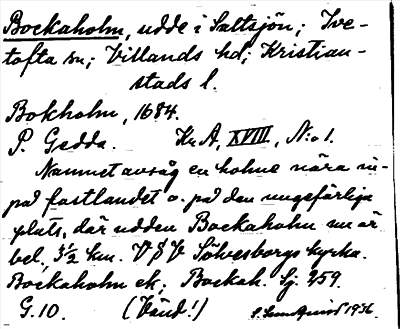 Bockaholm, udde i Saltsjön; Ive-
tofta sn; Villands hd; Kristian-
stads l.
Bokholm, 1684.
P. Gedda. Kr. A, XVIII, No 1.
Namnet avsåg en holme nära in-
på fastlandet o. på den ungefärliga
plats, där udden Bockaholm nu är
bel, 3½ km. V S V Sölvesborgs kyrka.
Bockaholm ek; Bockah. Sj. 259.
G. 10. (Vänd!) 1936.